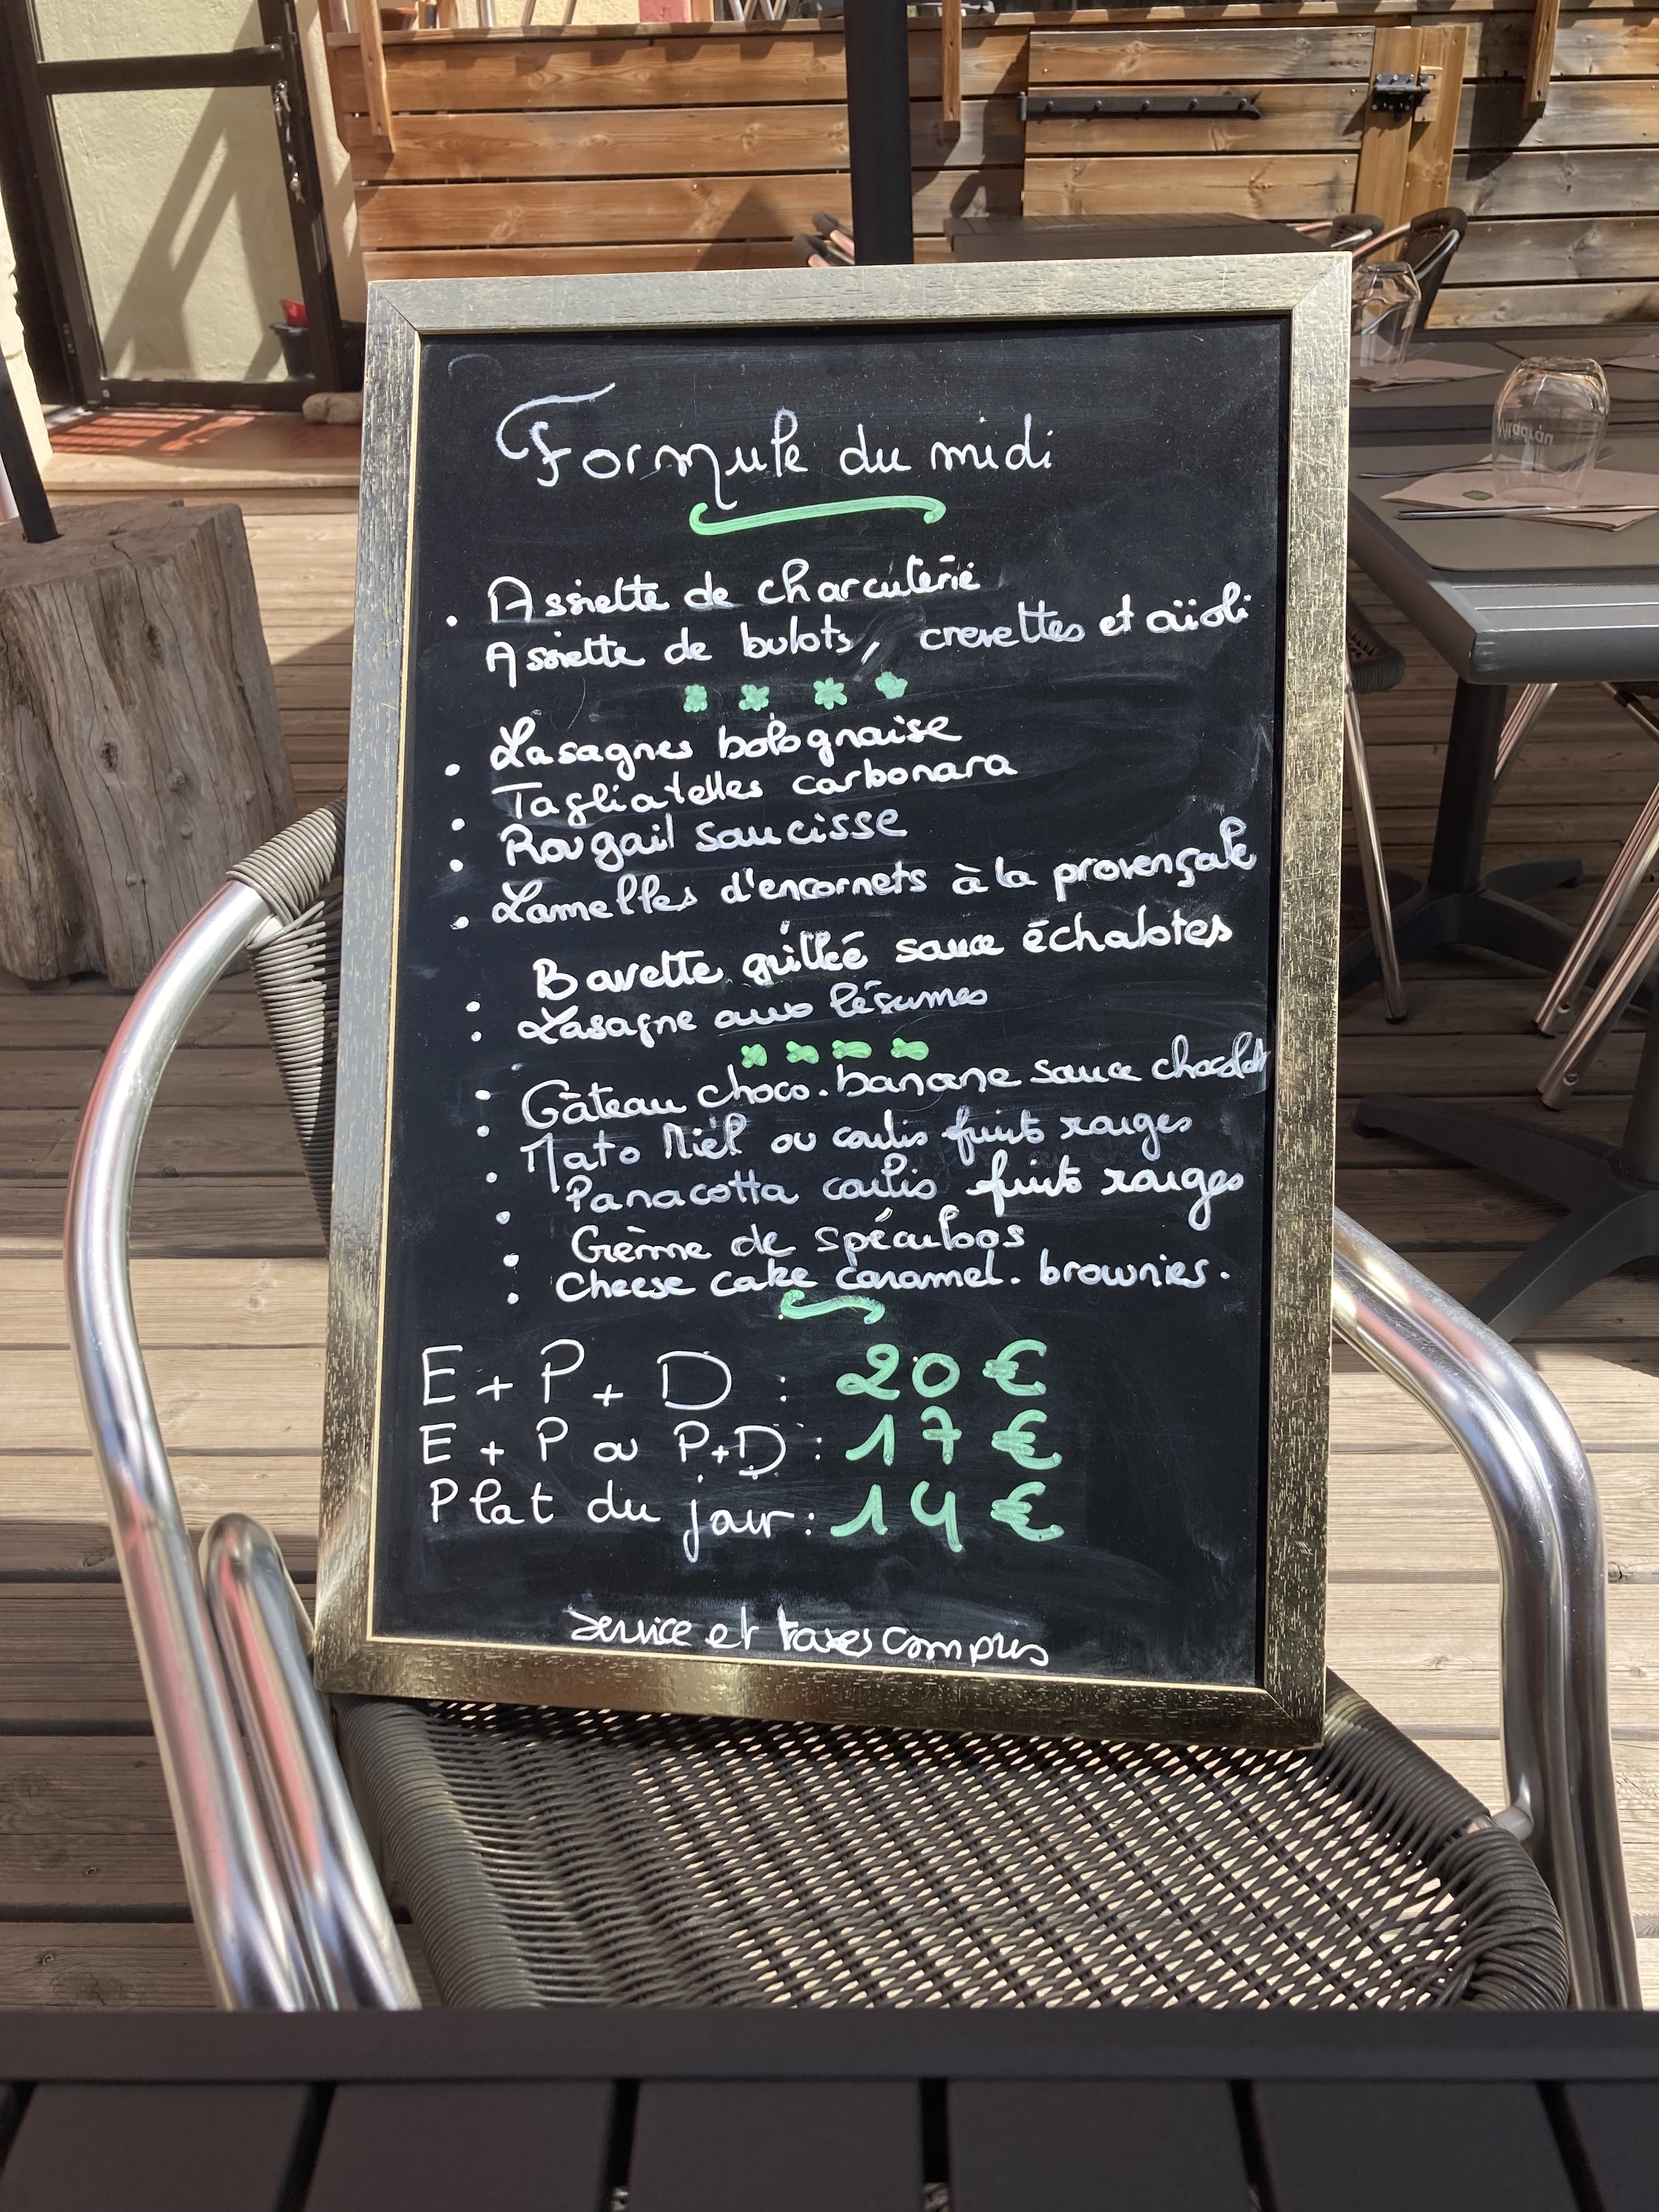 Formule du midi
. Assiette de charcuterie
Assiette de bulots, crevettes et aïoli
. Lasagnes bolognaise
. Tagliatelles carbonara
. Rougail saucisse
. Lamelles d'encornets à la provençale
. Bavette grillée sauce échalotes
. Lasagne aux légumes
. Gâteau choco-banane sauce chocolat
. Mato Miel ou coulis fruits rouges
. Panacotta coulis fruits rouges
. Crème de spéculoos
. Cheese cake caramel. brownies.
E + P + D : 20 €
E + P ou P+D : 17 €
Plat du jour : 14 €
Service et taxes compris